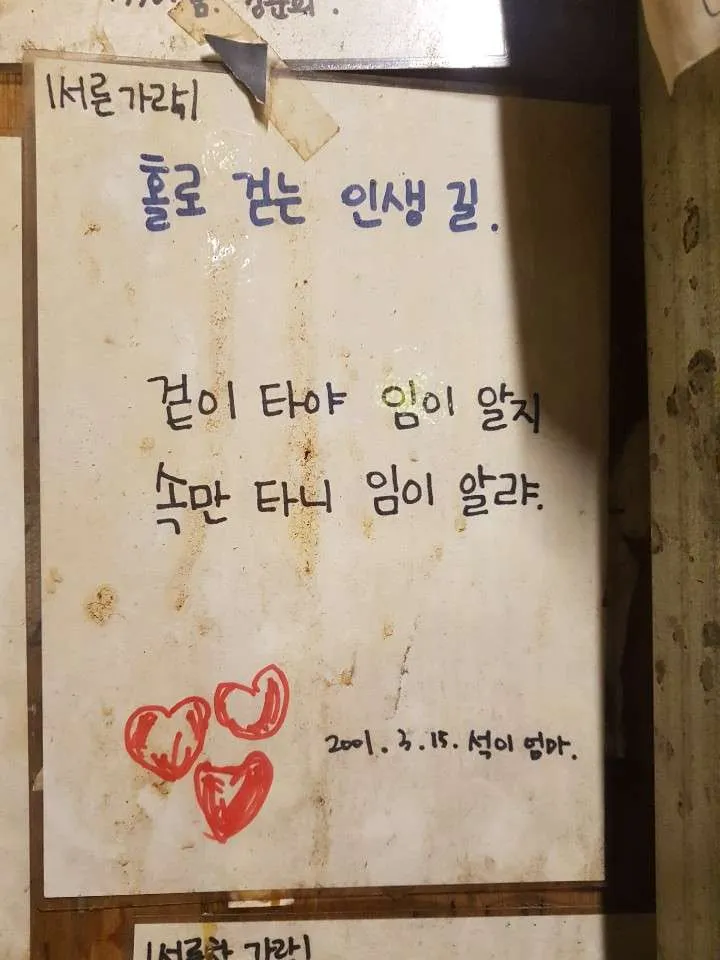 |서른 가락|
홀로 걷는 인생 길.
겉이 타야 임이 알지
속만 타니 임이 알랴.
2001. 3. 15. 석이 엄마.
|서른한 가락|